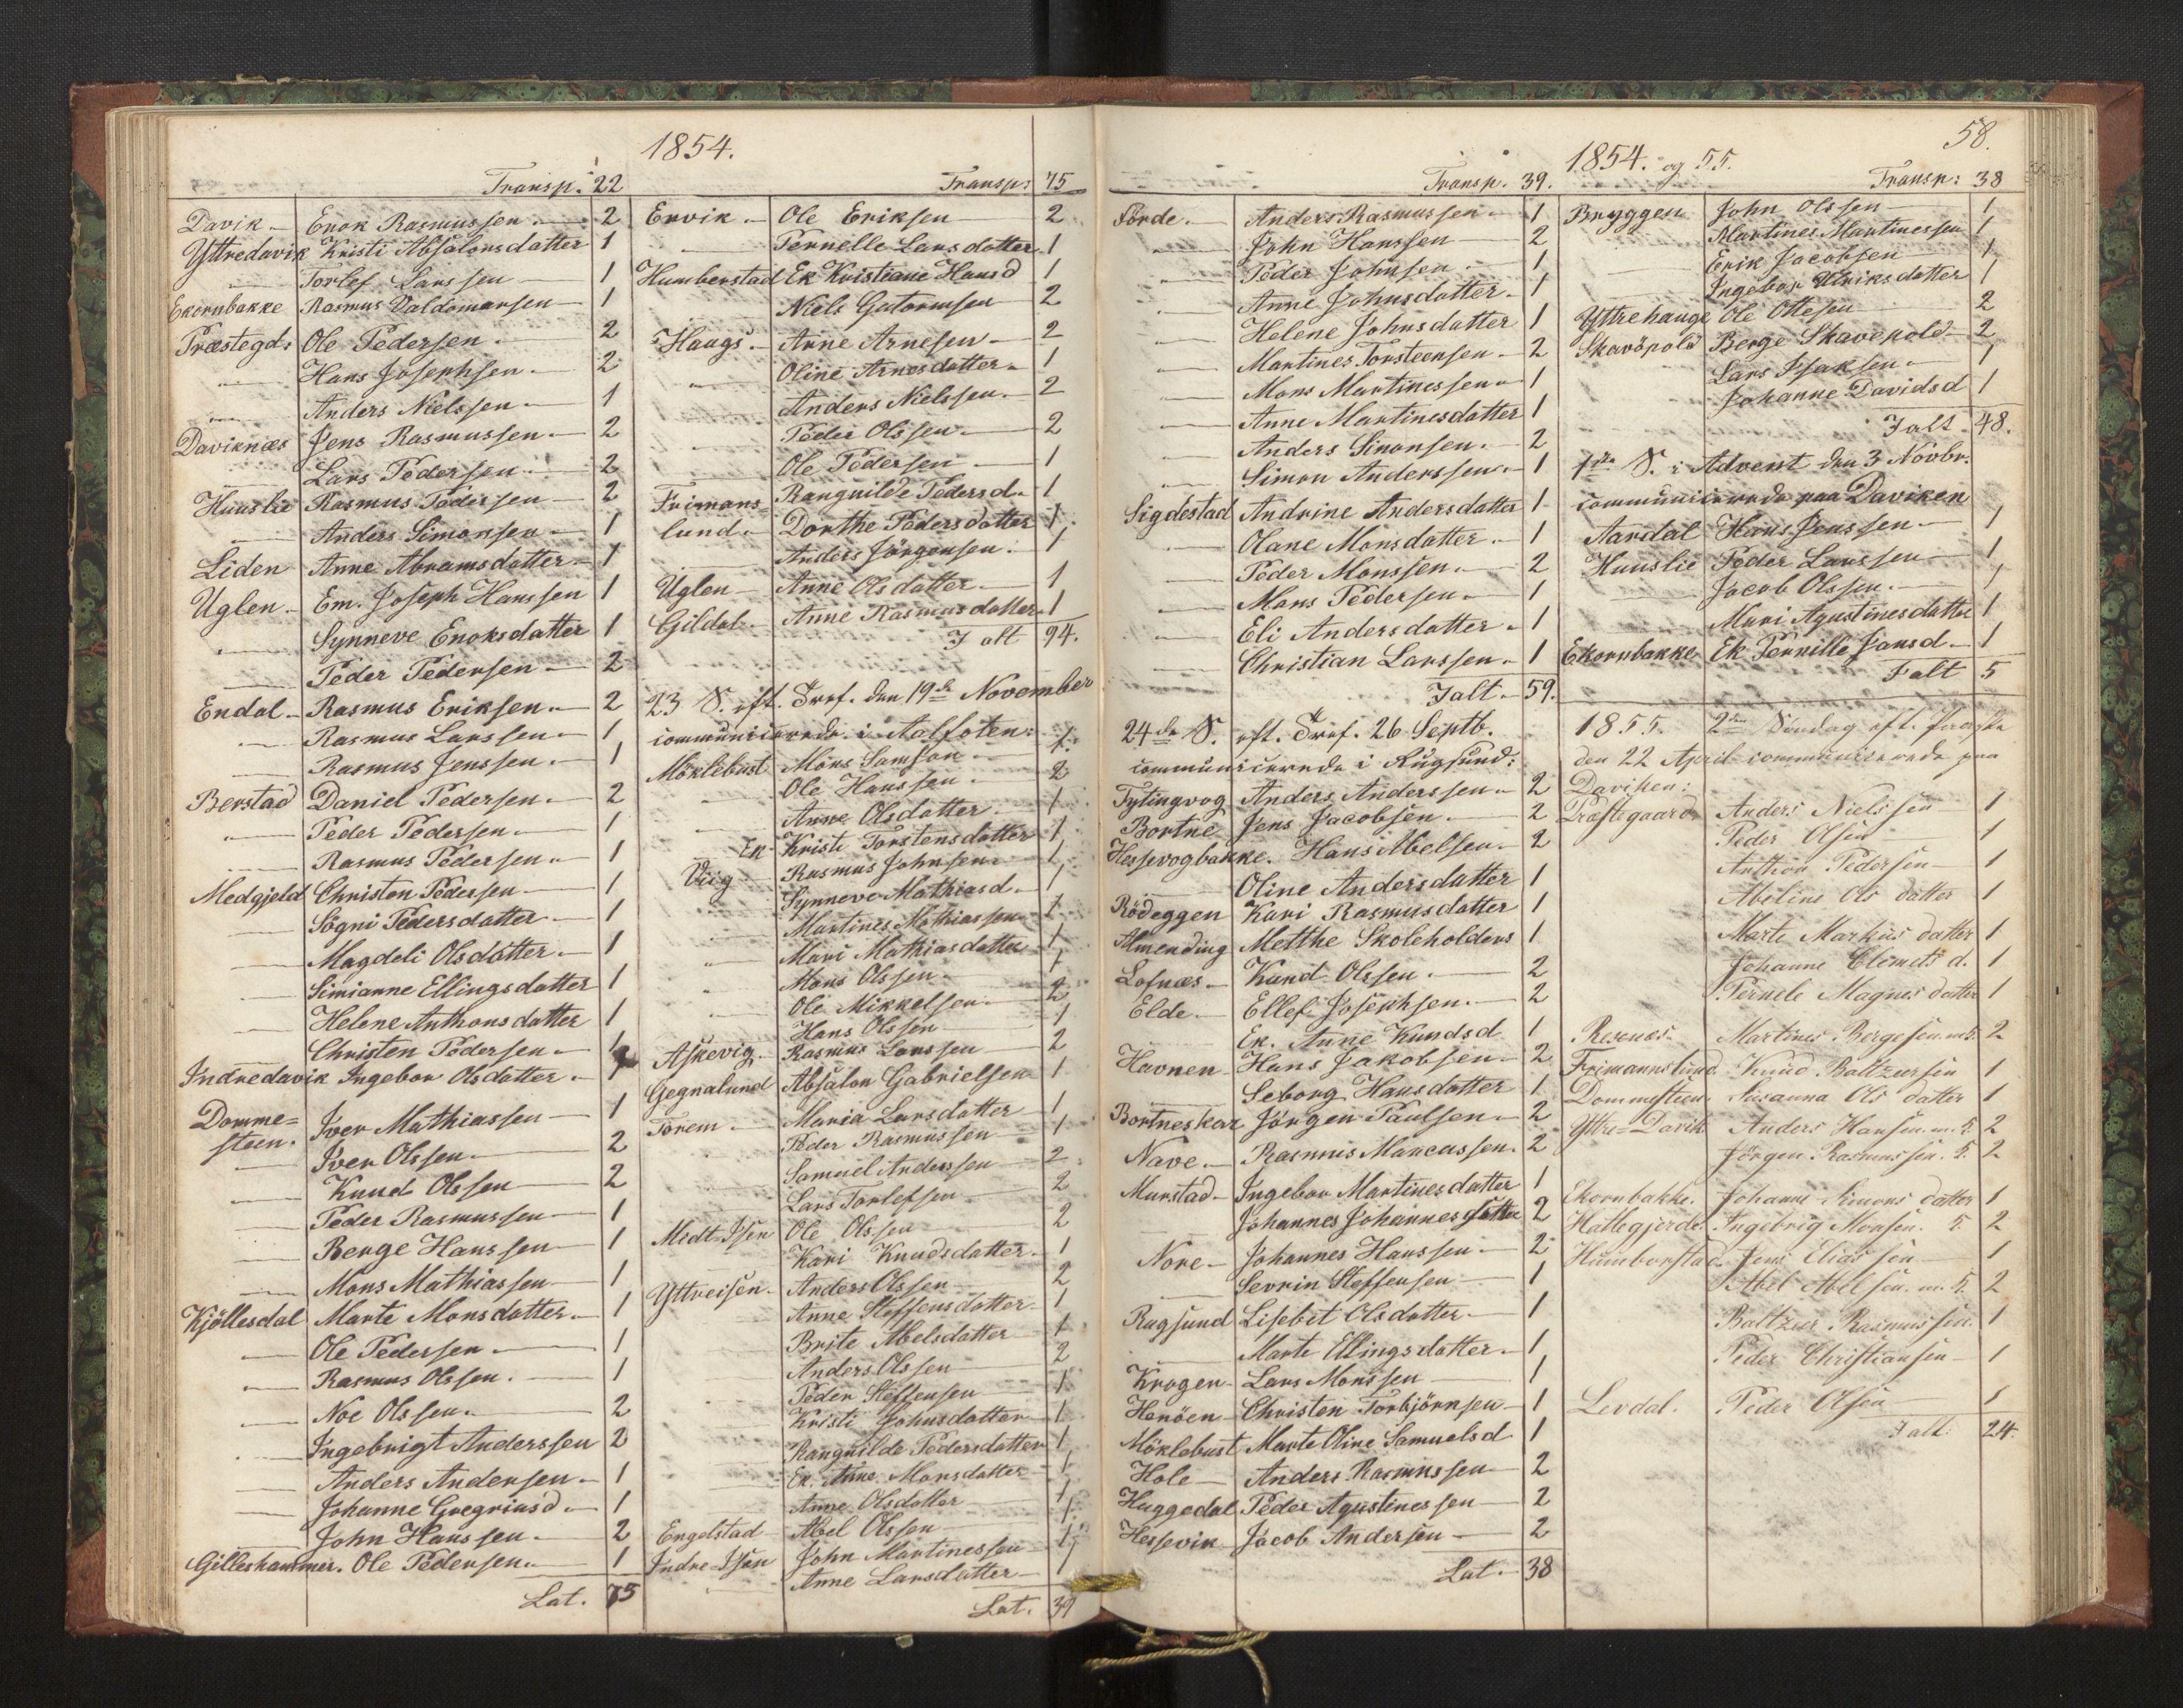 1854.
Transp: 22
Davik — Enok Rasmussen — 2
Yttredavik Kristi Absalonsdatter 1
— Torlef Larssen — 1
Ekornbakke Rasmus Valdemarsen — 1
Præstegd: Ole Pedersen — 2
— Hans Josephsen — 2
— Anders Nielssen — 1
Daviknæs Jens Rasmussen — 2
— Lars Pedersen — 2
Huuslie Rasmus Pedersen — 2
— Anders Simonsen — 1
Liden Anne Abramsdatter — 1
Uglen — Em. Joseph Hanssen 1
— Synneve Enoksdatter 1
— Peder Pedersen — 2
Endal — Rasmus Eriksen — 2
— Rasmus Larssen — 1
— Rasmus Jenssen — 1
Berstad Daniel Pedersen — 2
— Peder Pedersen — 1
— Rasmus Pedersen — 1
Medgjeld Christen Pedersen — 1
— Sögni Pedersdatter — 1
— Magdeli Olsdatter — 1
— Simianne Ellingsdatter 1
— Helene Anthonsdatter 1
— Christen Pedersen — 1
Indredavik Ingebor Olsdatter — 1
Domme=
steen. Iver Mathiassen — 1
— Iver Olssen — 2
— Knud Olssen — 2
— Peder Rasmussen — 1
— Berge Hanssen — 1
— Mons Mathiassen — 1
Kjöllesdal Marte Monsdatter — 1
— Ole Pedersen — 1
— Rasmus Olssen — 1
— Noe Olssen — 2
— Ingebrigt Anderssen 2
— Anders Andersen — 1
— Johanne Gregriusd — 1
— John Hanssen — 2
Gilleshammer. Ole Pedersen — 1
Lat. 75
Transp: 75
Ervik — Ole Eriksen — 2
— Pernelle Larsdatter 1
Humberstad Ek Kristiane Hansd 1
Niels Gutormsen 2
Haugs — Arne Arnesen — 2
— Oline Arnesdatter — 1
Anders Nielssen — 2
Peder Olssen — 2
Ole Pedersen — 1
Frimans= Rangnilde Pedersd — 1
lund — Dorthe Pedersdatter 1
— Anders Jörgensen — 1
Uglen — Anne Olsdatter — 1
Gildal — Anne Rasmusdatter 1
I alt 94.
23 S. eft. Tref. den 19de November
communicerede i Aalfoten:
Möklebust Mons Samson — 1
— Ole Hanssen — 2
Anne Olsdatter — 1
Ek Kristi Torstensdatter 1
Viig — Rasmus Johnsen — 1
Synneve Mathiasd — 1
Martines Mathiassen 1
Mari Mathiasdatter 1
Mons Olssen — 1
Ole Mikkelsen — 2
Hans Olssen — 1
Askevig — Rasmus Larssen — 2
Gegnalund Absalon Gabrielsen 1
Torem — Maria Larsdatter — 1
Peder Rasmussen — 1
Samuel Anderssen — 2
Lars Torlefsen — 2
Medt-Isen Ole Olssen — 2
Kari Knudsdatter — 1
Yttreisen — Anders Olssen — 2
Anne Steffensdatter 1
Brite Abelsdatter 1
Anders Olssen — 2
Peder Steffensen — 1
Kristi Johnsdatter 1
Rangnilde Pedersdatter 1
Ek. Anne Monsdatter 1
Anne Olsdatter 1
Engelstad — Abel Olssen — 1
Indre Isen John Martinessen 1
Anne Larsdatter — 1
Lat. 39
58.
1854. og 55.
Transp. 39.
Förde — Anders Rasmussen — 1
— John Hanssen — 2
— Peder Johnsen — 1
— Anne Johnsdatter — 1
— Helene Johnsdatter 1
— Martines Torsteensen — 2
— Mons Martinessen — 1
— Anne Martinesdatter 1
— Anders Simonsen — 2
— Simon Anderssen — 1
Sigdestad Andrine Andersdatter 1
— Olane Monsdatter — 1
— Peder Monssen — 2
— Mons Pedersen — 1
— Eli Andersdatter — 1
— Christian Larssen — 1
Ialt — 59.
24de S. eft. Tref. 26 Septb.
communicerede i Rugsund:
Tytingvog Anders Anderssen — 2
Bortne Jens Jacobsen — 2
Hessevogbakke. Hans Abelsen — 2
Oline Andersdatter 1
Rödeggen Kari Rasmusdatter 1
Almending Metthe Skoleholders 1
Lofnæs — Knud Olssen — 2
Elde — Ellef Josephsen — 2
Ek. Anne Knudsd 1
Havnen Hans Jakobsen — 2
— Seborg Hansdatter 1
Bortneskar Jörgen Paulsen — 2
Nave — Rasmus Marcussen 2
Murstad — Ingebor Martinesdatter 1
— Johannes Johannesdatter 2
Nore — Johannes Hanssen — 2
— Sevrin Steffensen — 1
Rugsund Lisebet Olsdatter — 1
— Marte Ellingsdatter — 1
Krogen — Lars Monssen — 1
Henöen — Christen Torbjörnsen — 1
Möklebust Marte Oline Samuelsd 1
Hole — Anders Rasmussen — 2
Huggedal Peder Agustinessen — 2
Hessevik Jacob Andersen — 2
Lat. — 38
Transp: 38
Bryggen John Olssen — 1
Martines Martinessen 1
— Erik Jacobsen — 1
Ingebor Ulriksdatter 1
Yttrehauge Ole Ottesen — 2
Skavöpold Berge Skavepold — 2
Lars Isaksen — 1
Johanne Davidsd 1
Ialt — 48.
1ste S. i Advent den 3 Novbr.
communicerede paa Daviken
Aardal Hans Jenssen — 1
Huuslie Peder Larssen — 1
— Jacob Olssen — 1
Mari Agustinesdatter 1
Ekornbakke Ek Pernille Jansd — 1
Ialt 5
1855. 2den Søndag eft. Paaske
den 22 April communicerede paa
Daviken:
Præstegaard Anders Nielssen 1
Peder Olsen 1
Anthon Pedersen — 1
Abeline Ols datter 1
Marte Markus datter 1
Johanne Clemets d. 1
Pernele Magnes datter 1
Resenes Martines Bergesen m 5. 2
Frimannslund Knud Baltzersen 1
Dommestien Susanna Ols datter 1
Yttre=Davik Anders Hansen m. 5. 2
Jörgen Rasmussen. 5. 2
Ekornbakke. Johanne Simons datter 1
Hallegjerde. Ingebrig Monsen. 5. 2
Humborstad Jens Eliassen 1
Abel Abelsen. m. 5. 2
Baltzer Rasmussen 1
Peder Christiansen — 1
Levdal. Peder Olsen 1
Ialt: 24.